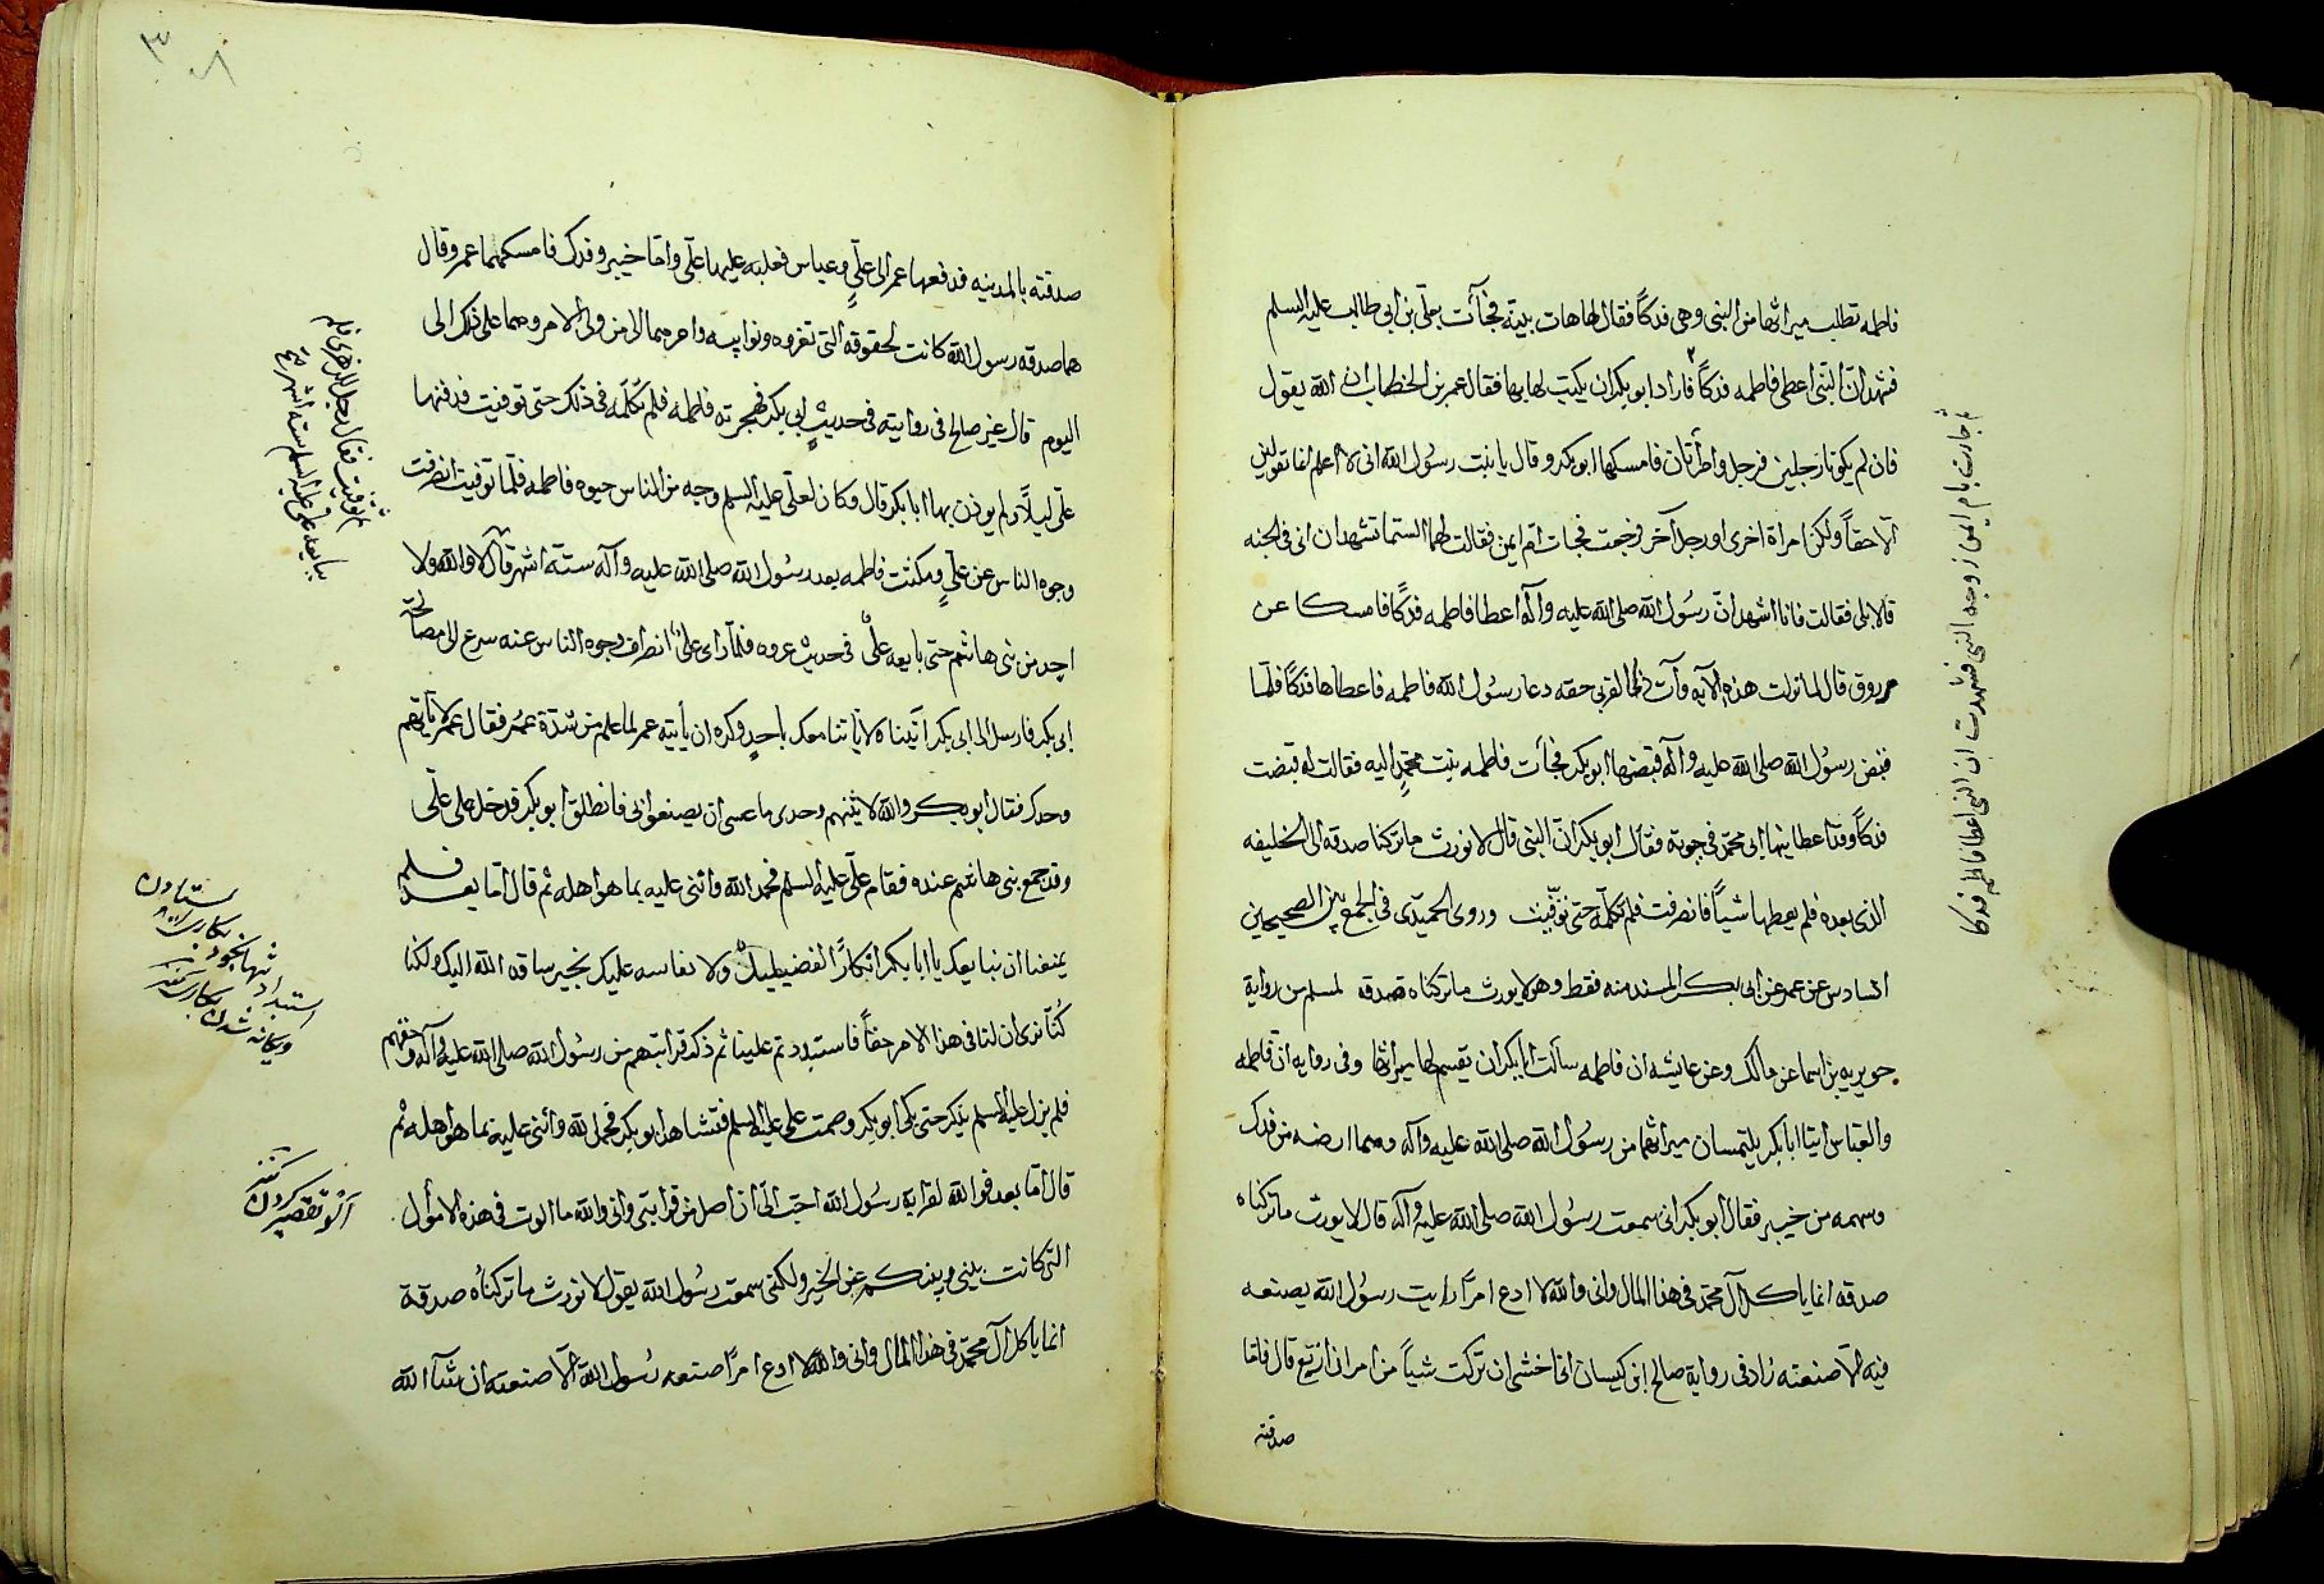 فاطمه تطلب ميراثها من النبى وهى فدكاً فقال لها هات بينة فجآءت بعلّى بن ابى طالب عليه السلم
فشهد انّ النبّى اعطى فاطمه فدكاً فاراد ابو بكر ان يكتب لها بها فقال عمر بن الخطاب ان الله يقول
فان لم يكونا رجلين فرجل وامرأتان فامسكها ابو بكر وقال يا بنت رسُول الله انى لا اعلم انما تقولين
الّا حقاً ولكن امراة اخرى او رجل آخر فرجعت فجات ام ايمن فقالت لهما الستما تشهدان انى فى الجنه
قالا بلى فقالت فانا اشهد انّ رسُول الله صلى الله عليه وآله اعطا فاطمه فدكاً فامسكا عن
مروق قال لما نزلت هذه الآيه وآت ذا القربى حقه دعا رسُول الله فاطمه فاعطاها فدكاً فلمّا
قبض رسُول الله صلى الله عليه وآله قبضها ابو بكر فجآءت فاطمه بنت محمّدٍ اليه فقالت له قبضت
فدكاً وقد اعطانيها ابى محمّد فى حيوته فقال ابو بكر انّ النبّى قال لا نورث ما تركنا صدقه الى الخليفه
الذى بعده فلم يعطها شياً فانصرفت فلم تكلّمه حتى توّفيت وروى الحميدّى فى الجمع بين الصحيحين
السّادس عن عمر عن ابى بكر المسند منه فقط وهو لا يورث ما تركناه صدقه لمسلم من رواية
جويريه بن اسما عن مالك وعن عايشه ان فاطمه سألت ابا بكر ان يقسم لها ميراثها وفى روايه ان فاطمه
والعبّاس اتيا ابا بكر يلتمسان ميراثهما من رسُول الله صلى الله عليه وآله وهما ارضه من فدك
وسهمه من خيبر فقال ابو بكر انى سمعت رسُول الله صلى الله عليه وآله قال لا يورث ما تركناه
صدقه انما ياكل آل محمّد فى هذا المال وانى والله لا ادع امراً رايت رسُول الله يصنعه
فيه الّا صنعته زاد فى رواية صالح ابن كيسان انى اخشى ان تركت شياً من امر ان ازيغ قال فامّا
صدقته
ثم جاءت بام ايمن زوجه النبى فشهدت ان النبى اعطا فاطمه فدكا
صدقته بالمدينه فدفعها عمر الى علّىٍ وعباس فغلبه عليها علّى وامّا خيبر وفدك فامسكهما عمر وقال
هما صدقه رسول الله كانت لحقوقه التى تعروه ونوايبه وامرهما الى من ولى الامر وهما على ذلك الى
اليوم قال غير صالح فى روايته فى حديث ابى بكر فهجرته فاطمه فلم تكلّمه فى ذلك حتى توفيت فدفنها
علّى ليلاً ولم يوذن بها ابا بكر قال وكان لعلّى عليه السلم وجه من الناس حيوه فاطمه فلمّا توفيت انصرفت
وجوه الناس عن علّىٍ ومكثت فاطمه بعد رسُول الله صلى الله عليه وآله ستة اشهر قال لا والله ولا
احد من بنى هاشم حتى بايعه علّىٌ فى حديث عروه فلمّا راى علّىٌ انصراف وجوه الناس عنه سرع الى مصالحة
ابى بكر فارسل الى ابى بكر آتينا ولا ياتنا معك باحدٍ وكره ان يأتيه عمر لما علم من شدّة عمُر فقال عمر لا تأيتهم
وحدك فقال ابو بكر والله لآتينهم وحدى ما عسى ان يصنعوا بى فانطلق ابو بكر فدخل على علّى
وقد جمع بنى هاشم عنده فقام علّى عليه السلم فحمد الله واثنى عليه بما هو اهله ثم قال امّا بعد فلم
يمنعنا ان نبايعك يا ابا بكر انكاراً لفضيلتك ولا نفاسه عليك بخير ساقه الله اليك ولكنا
كُنّا نرى ان لنا فى هذا الامر حقاً فاستبددتم علينا ثم ذكر قرابتهم من رسُول الله صلى الله عليه وآله وحقهم
فلم يزل عليه السلم يذكر حتى بكى ابو بكر وصمت على عليه السلم فتشاهد ابو بكر فحمد الله واثنى عليه بما هو اهله ثم
قال امّا بعد فوالله لقرابة رسُول الله احبّ الىّ ان اصل من قرابتى وانى والله ما الوت فى هذه الاموال
التى كانت بينى وبينكم عن الخير ولكنى سمعت رسُول الله يقول لا نورث ما تركناُه صدقة
انما ياكل آل محمّد فى هذا المال وانى والله لا ادع امراً صنعه رسُول الله الّا صنعته ان شآء الله
توفيت فقال رجل للزهرى فلم
يبايعه على عليه السلم سته اشهر
استبداد تنها بخود
بكارى
ويكانه شدن بكارى
آلو تقصير كردن